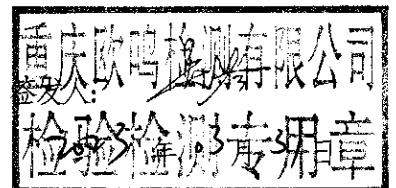 重庆欧鸣检测有限公司
签发人：
检验检测专用章
2023年03月31日